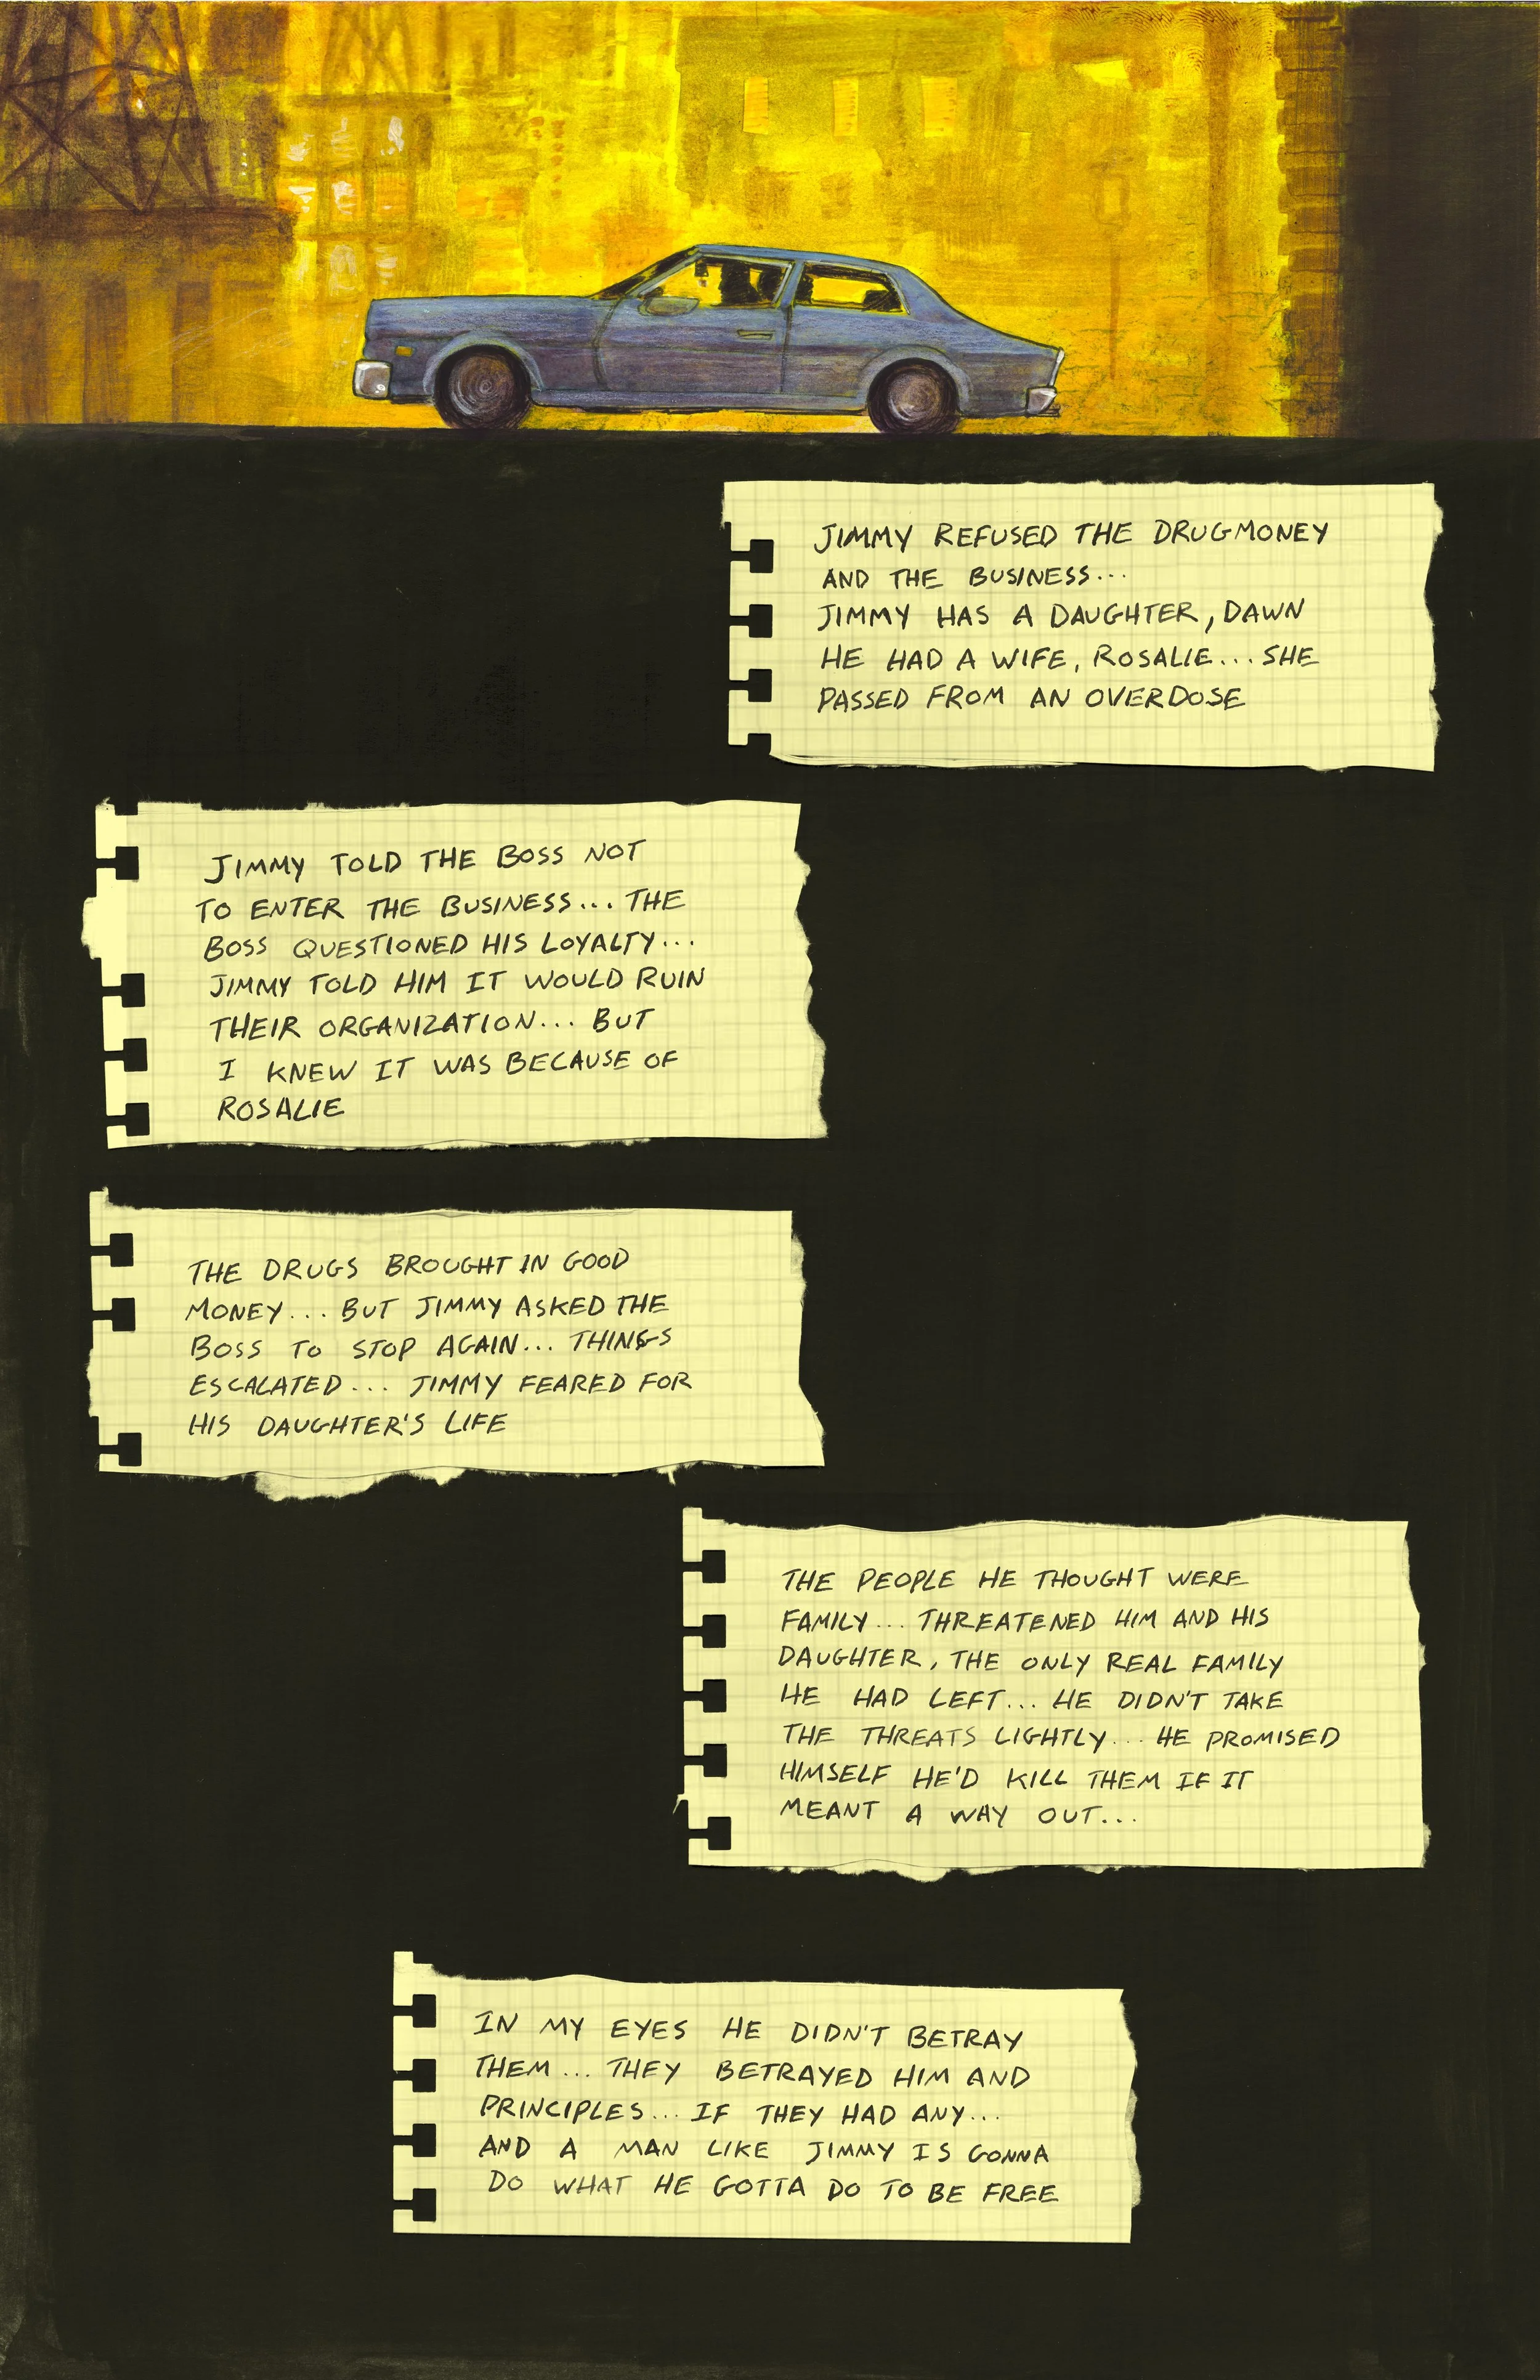 JIMMY REFUSED THE DRUGMONEY
AND THE BUSINESS...
JIMMY HAS A DAUGHTER, DAWN
HE HAD A WIFE, ROSALIE... SHE
PASSED FROM AN OVERDOSE
JIMMY TOLD THE BOSS NOT
TO ENTER THE BUSINESS... THE
BOSS QUESTIONED HIS LOYALTY...
JIMMY TOLD HIM IT WOULD RUIN
THEIR ORGANIZATION... BUT
I KNEW IT WAS BECAUSE OF
ROSALIE
THE DRUGS BROUGHT IN GOOD
MONEY... BUT JIMMY ASKED THE
BOSS TO STOP AGAIN... THINGS
ESCALATED... JIMMY FEARED FOR
HIS DAUGHTER'S LIFE
THE PEOPLE HE THOUGHT WERE
FAMILY... THREATENED HIM AND HIS
DAUGHTER, THE ONLY REAL FAMILY
HE HAD LEFT... HE DIDN'T TAKE
THE THREATS LIGHTLY... HE PROMISED
HIMSELF HE'D KILL THEM IF IT
MEANT A WAY OUT...
IN MY EYES HE DIDN'T BETRAY
THEM... THEY BETRAYED HIM AND
PRINCIPLES... IF THEY HAD ANY...
AND A MAN LIKE JIMMY IS GONNA
DO WHAT HE GOTTA DO TO BE FREE